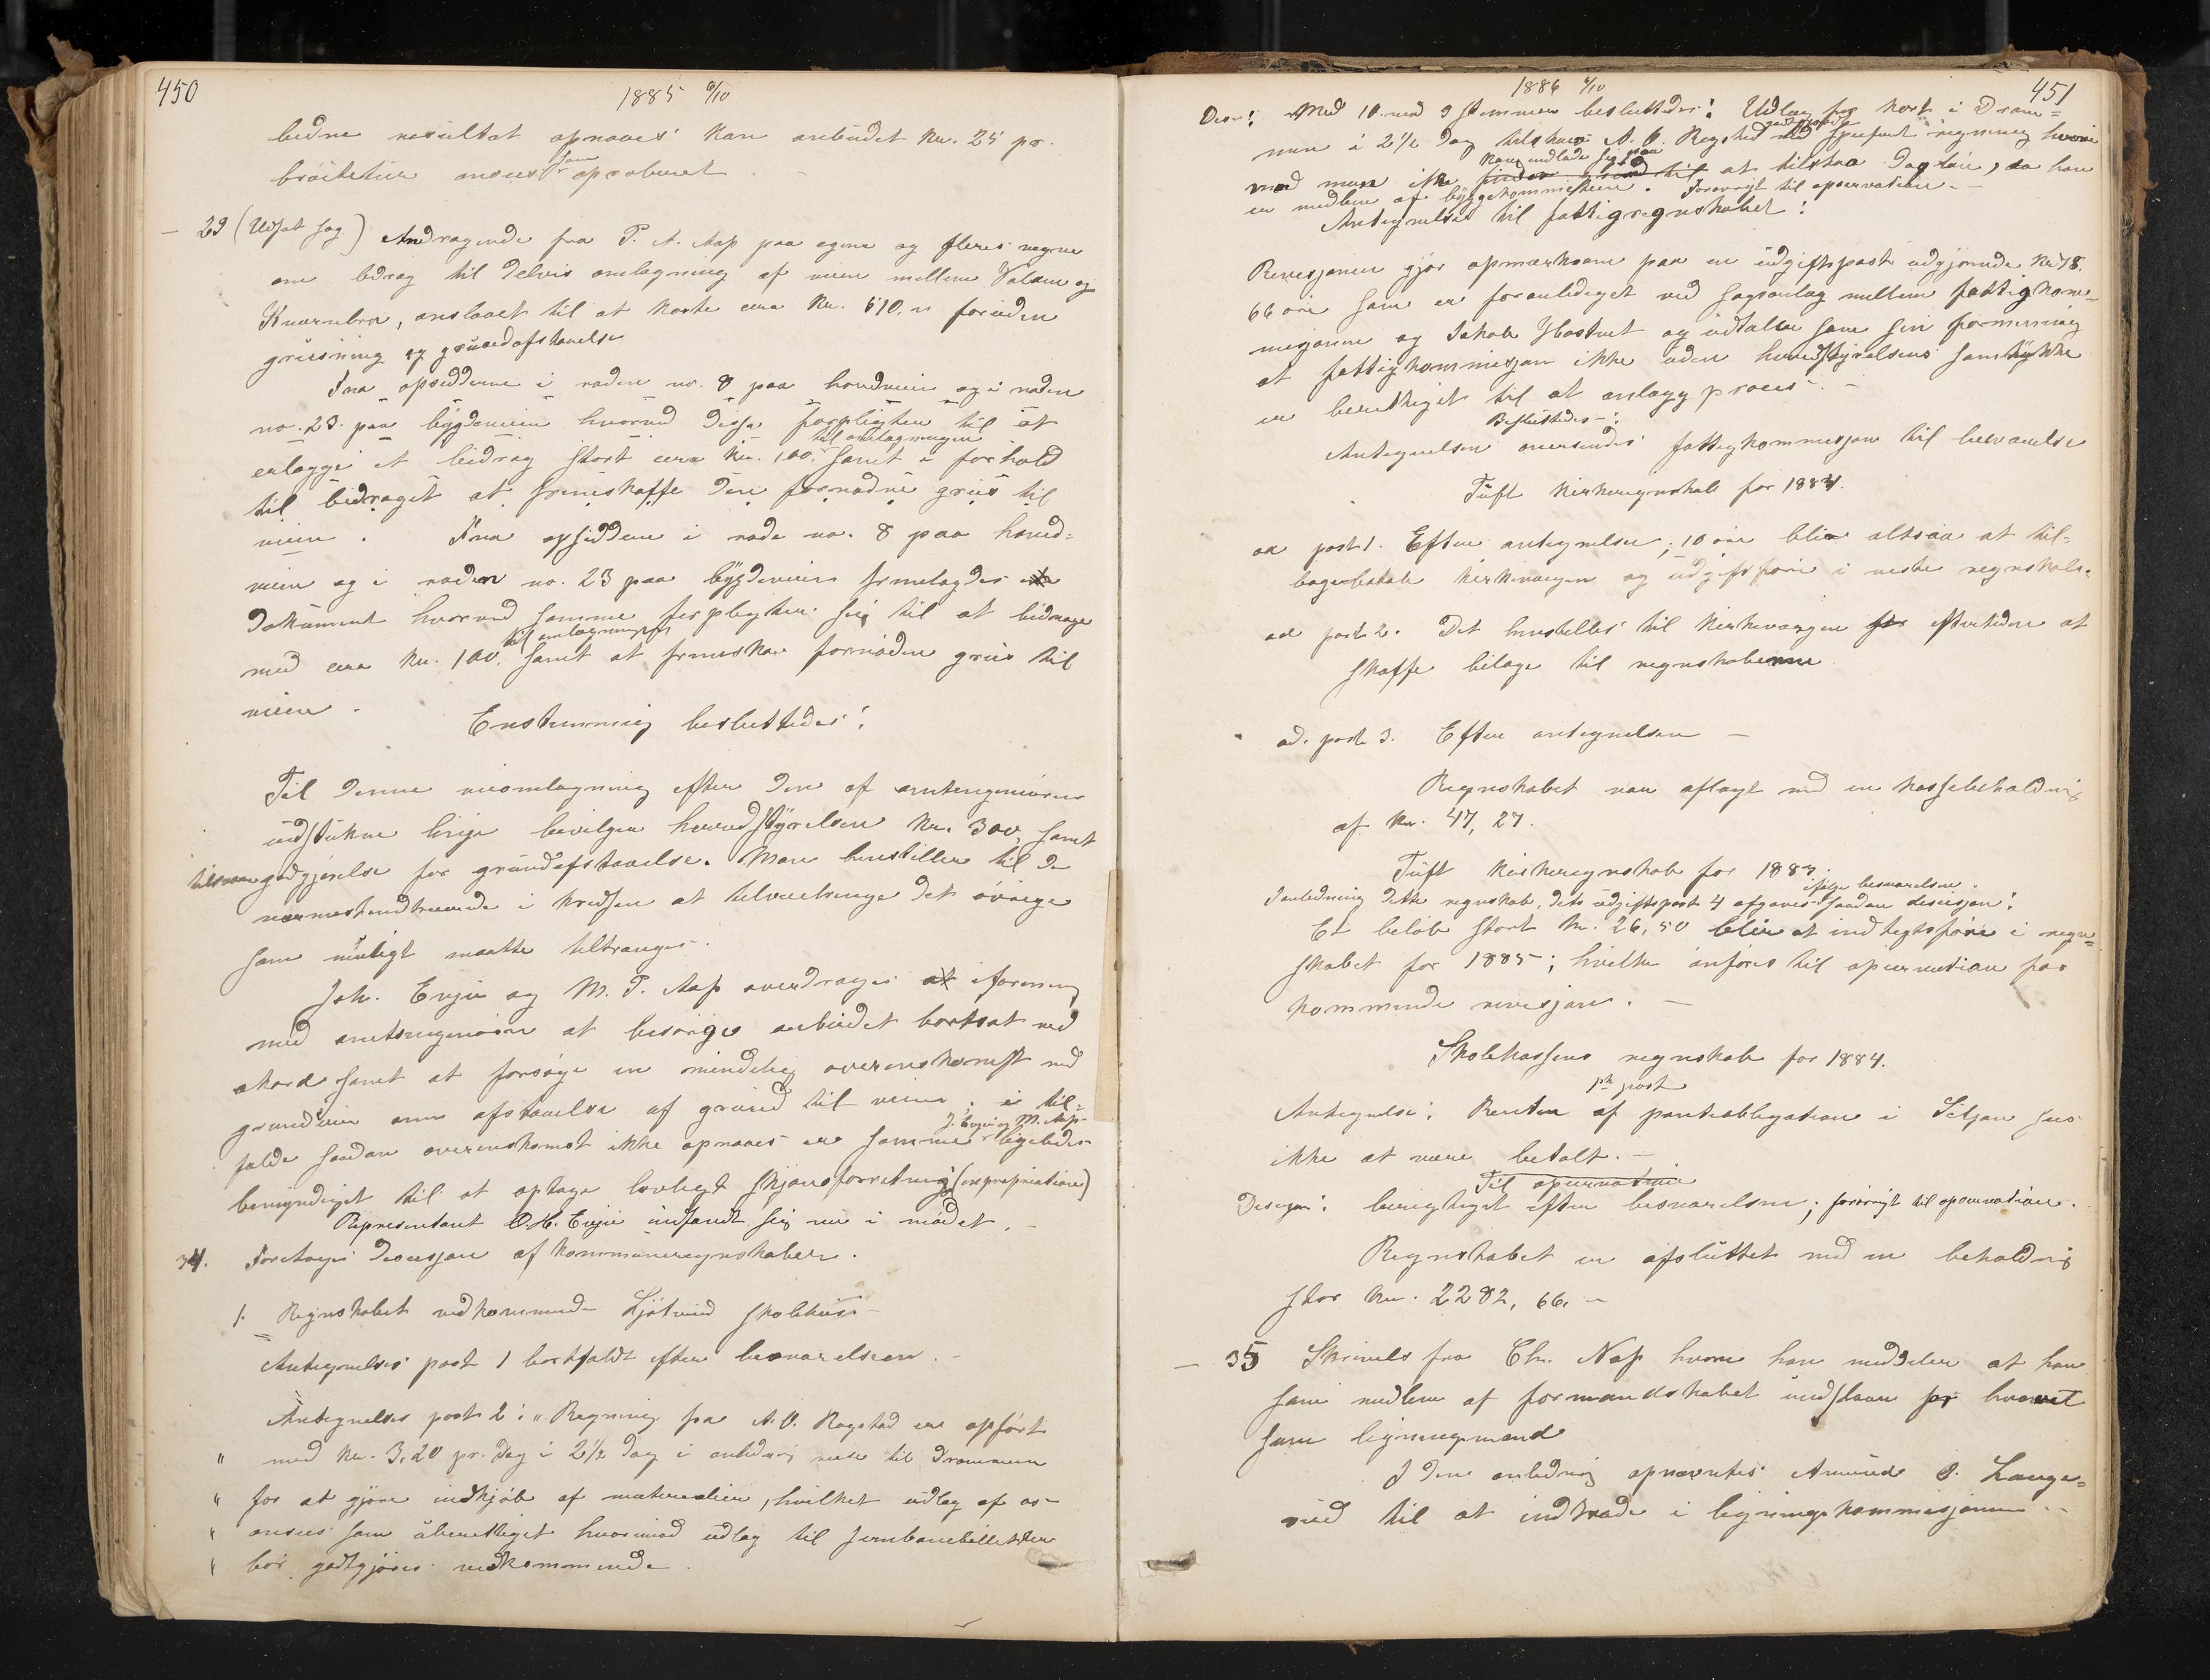 450
1885 9/10
bedre resultat opnaaes kan anbudet kr. 25 pr.
som
ansees aproberet
- 29 (Udsat sag) Andragende fra P. A. Aas paa egne og fleres vegne
om bidrag til delvis omlægning af veien mellem og
Kvernbro, anslaaet til at koste cirka kr. 610, foruden
grusning og grundafstaaelse
Fra opsidderne i roden no. 8 paa hovedveien og i roden
no. 23 paa bygdeveien hvorved disse forpligter til at
til omlægningen
erlægge et bidrag stort cirka kr. 100. samt i forhold
til bidraget at fremskaffe den fornødne grus til
veien. Fra opsidderne i rode no. 8 paa hoved=
veien og i roden no. 23 paa bygdeveien fremlagdes
dokument hvorved samme forpligter sig til at bidrage
til omlægningen
med cirka kr. 100. samt at fremskaffe fornøden grus til
veien.
Enstemmig besluttedes:
Til denne veiomlægning efter den af amtsingeniøren
udstukne linje bevilger herredsstyrelsen kr. 300, samt
godtgjørelse for grundafstaaelse. Man henstiller til de
nærmestindtræende i kredsen at tilveiebringe det øvrige
som muligt maatte tiltrænges.
Joh. Evju og M. P. Aas overdrages i forening
med amtsingeniøren at besørge arbeidet bortsat ved
akord samt at forsøge en mindelig overenskomst med
grundeier om afstaaelse af grund til veien; i til=
J. Evju og M. Aas
fælde saadan overenskomst ikke opnaaes er samme ligeledes
bemyndiget til at optage lovligt skjønsforretning (expropriation)
Representant O. H. Evju indfandt sig nu i mødet.
34. Foretages decisjon af kommuneregnskaber.
1. Regnskabet vedkommende skolehus
Antegnelses post 1 bortfaldt efter besvarelsen.
Antegnelses post 2: "Regning fra A. O. Ragstad er opført
" med kr. 3,20 pr. dag i 2 1/2 dag i anledning reise til Drammen
" for at gjøre indkjøb af materialier, hvilket udlæg af os
" ansees som uberettiget hvorimod udlæg til jernbanebilletter
" bør godtgjøres vedkommende.
1886 9/10
451
Des: Med 10 mod 9 stemmer besluttedes: Udlæg for kost i Dram=
godtgjøres
men i 2 1/2 dag A. O. Ragstad med specifert regning hvori
kan indlade sig paa
mod man ikke finder grund til at tilstaa dagløn, da han
er medlem af byggekommissionen. Forøvrigt til observation.
Antegnelser til fattigregnskabet:
Revisjonen gjør opmærksom paa en udgiftspost udgjørende kr. 78.
66 øre som er foranlediget ved sagsanlæg mellem fattigkom=
misjonen og Jakob og udtaler som sin formening
at fattigkommisjon ikke uden herredsstyrelsens samtykke
er berettiget til at anlægge proces.
Besluttedes:
Antegnelsen oversendes fattigkommisjon til besvarelse
Tuft kirkeregnskab for 1884.
ad post 1. Efter antegnelsen; 10 øre blir altsaa at til=
bagebetale kirkeværgen og udgiftsføre i neste regnskab.
ad post 2. Det henstilles til kirkeværgen for eftertiden at
skaffe bilage til regnskaberne
ad. post 3. Efter antegnelsen
Regnskabet var aflagt med en kassebeholdning
af kr. 47, 27.
Tuft kirkeregnskab for 1883.
ifølge besvarelsen.
I anledning dette regnskab, dets udgiftspost 4 afgaves saadan desisjon:
Et beløb stort kr. 26,50 blir at indtegtsføre i regn=
skabet for 1885; hvilke anføres til observation for
kommende revisjon.
Skolekassens regnskab for 1884.
1ste post
Antegnelse: Renter af pantobligation i sees
ikke at være betalt.
Til observation
Desisjon: berigtiget efter besvarelsen; forøvrigt til observation.
Regnskabet er afsluttet med en beholdning
stor kr. 2282, 66.
- 35 Skrivelse fra Chr. Aas hvori han meddeler at han
som medlem af formandskabet undslaar for hvervet
som ligningsmand
I den anledning opnævntes Amund O. Lange=
rud til at indtræde i ligningskommisjonen.